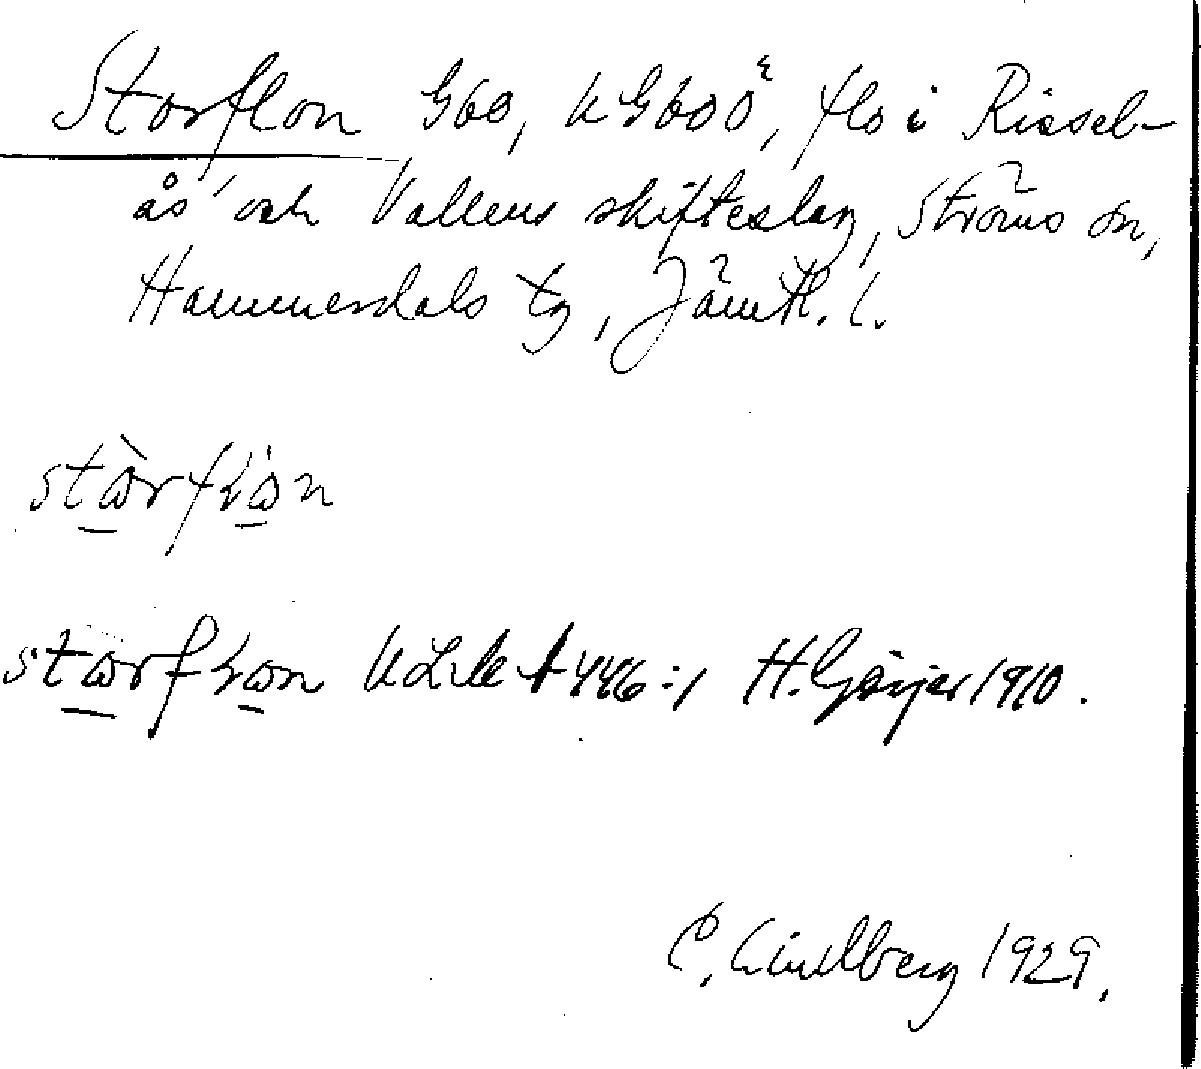 Storflon G60, KG600², flo i Rissel-
ås och Vallens skifteslag, Ströms sn,
Hammerdals tg, Jämtl. l.
stɷ̀rfɷ̀n
stɷrfɷn A 446:1 H. Geijer 1910.
C. Lindberg 1929.